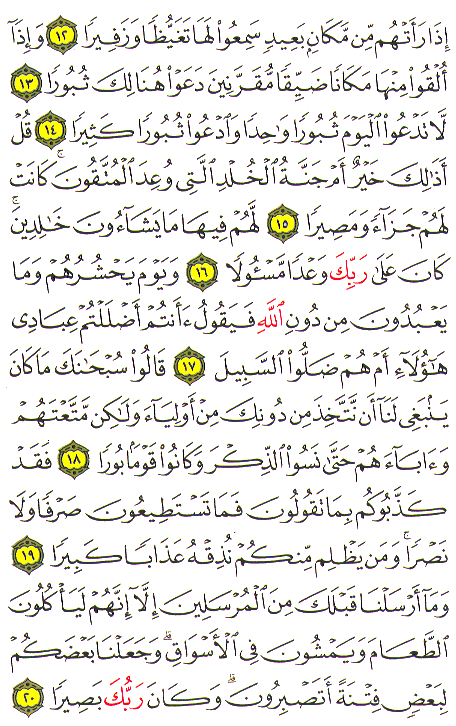 إِذَا رَأَتْهُم مِّن مَّكَانٍۭ بَعِيدٍ سَمِعُوا۟ لَهَا تَغَيُّظًا وَزَفِيرًا ١٢ وَإِذَآ
أُلْقُوا۟ مِنْهَا مَكَانًا ضَيِّقًا مُّقَرَّنِينَ دَعَوْا۟ هُنَالِكَ ثُبُورًا ١٣
لَّا تَدْعُوا۟ ٱلْيَوْمَ ثُبُورًا وَٰحِدًا وَٱدْعُوا۟ ثُبُورًا كَثِيرًا ١٤ قُلْ
أَذَٰلِكَ خَيْرٌ أَمْ جَنَّةُ ٱلْخُلْدِ ٱلَّتِى وُعِدَ ٱلْمُتَّقُونَ ۚ كَانَتْ
لَهُمْ جَزَآءً وَمَصِيرًا ١٥ لَّهُمْ فِيهَا مَا يَشَآءُونَ خَٰلِدِينَ ۚ
كَانَ عَلَىٰ رَبِّكَ وَعْدًا مَّسْـُٔولًا ١٦ وَيَوْمَ يَحْشُرُهُمْ وَمَا
يَعْبُدُونَ مِن دُونِ ٱللَّهِ فَيَقُولُ ءَأَنتُمْ أَضْلَلْتُمْ عِبَادِى
هَٰٓؤُلَآءِ أَمْ هُمْ ضَلُّوا۟ ٱلسَّبِيلَ ١٧ قَالُوا۟ سُبْحَٰنَكَ مَا كَانَ
يَنۢبَغِى لَنَآ أَن نَّتَّخِذَ مِن دُونِكَ مِنْ أَوْلِيَآءَ وَلَٰكِن مَّتَّعْتَهُمْ
وَءَابَآءَهُمْ حَتَّىٰ نَسُوا۟ ٱلذِّكْرَ وَكَانُوا۟ قَوْمًۢا بُورًا ١٨ فَقَدْ
كَذَّبُوكُم بِمَا تَقُولُونَ فَمَا تَسْتَطِيعُونَ صَرْفًا وَلَا
نَصْرًا ۚ وَمَن يَظْلِم مِّنكُمْ نُذِقْهُ عَذَابًا كَبِيرًا ١٩
وَمَآ أَرْسَلْنَا قَبْلَكَ مِنَ ٱلْمُرْسَلِينَ إِلَّآ إِنَّهُمْ لَيَأْكُلُونَ
ٱلطَّعَامَ وَيَمْشُونَ فِى ٱلْأَسْوَاقِ ۗ وَجَعَلْنَا بَعْضَكُمْ
لِبَعْضٍ فِتْنَةً أَتَصْبِرُونَ ۗ وَكَانَ رَبُّكَ بَصِيرًا ٢٠